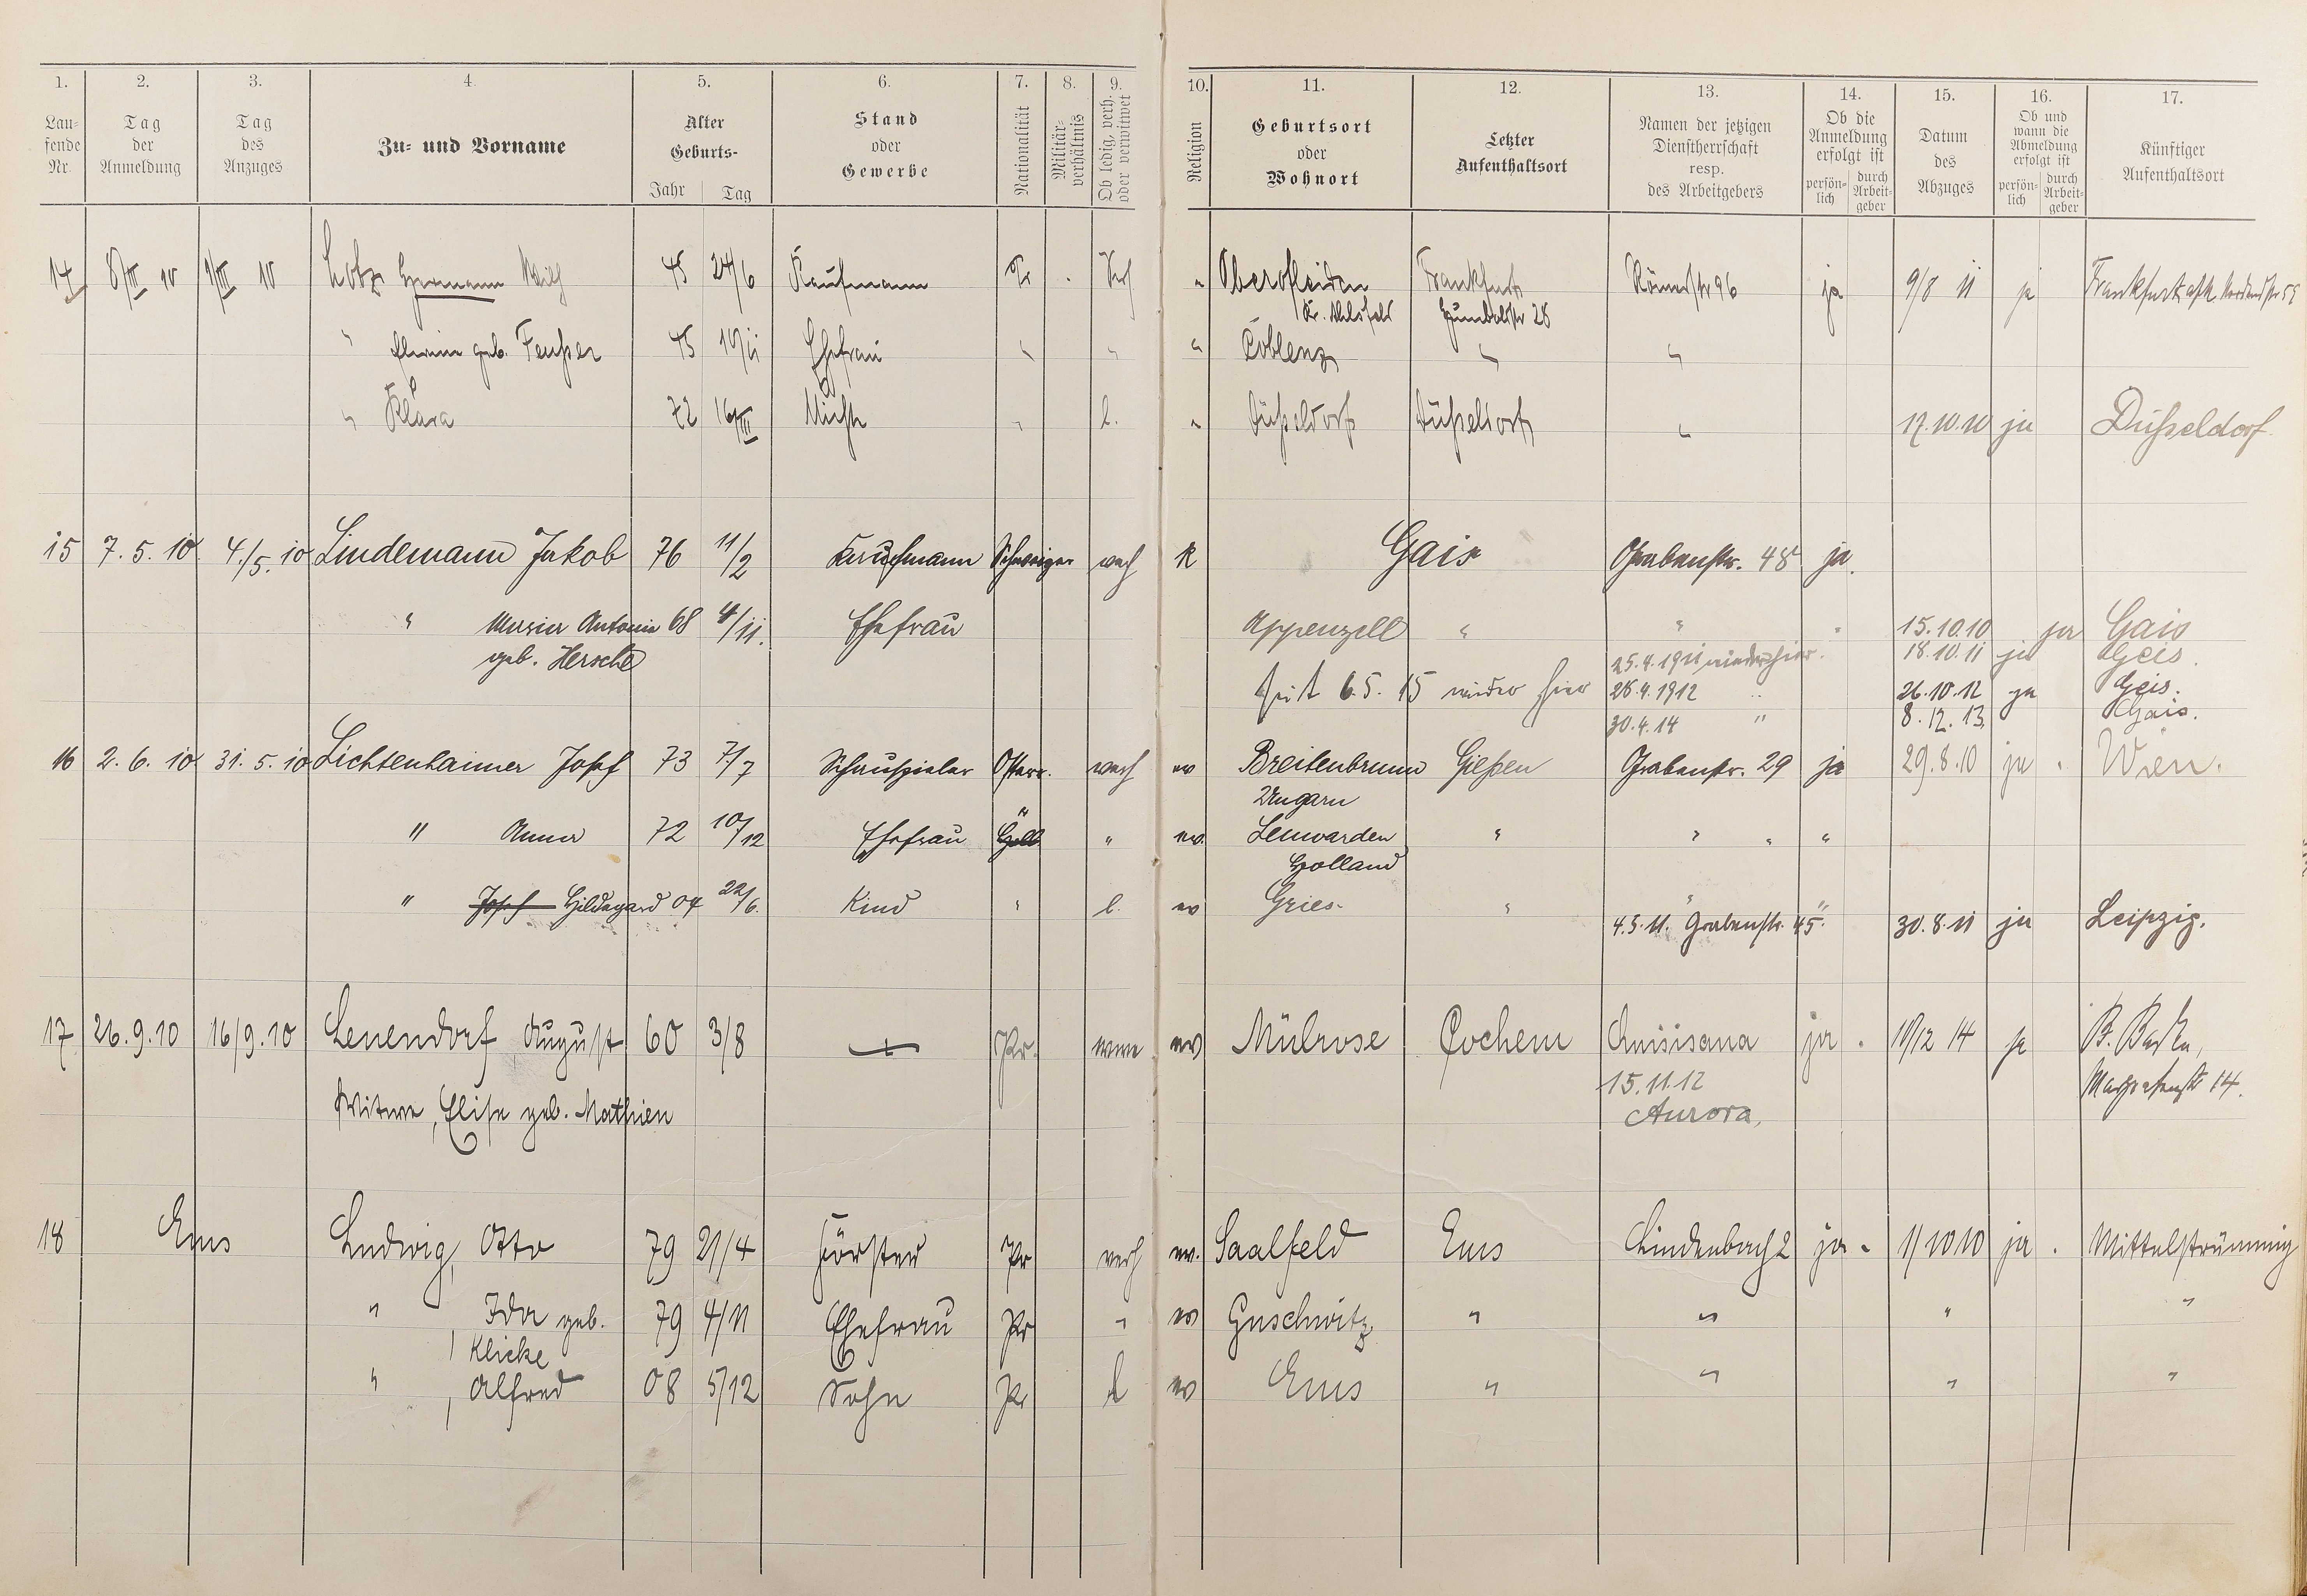 1. 2. 3. 4. 5. 6. 7. 8. 9. 10. 11. 12. 13. 14. 15. 16. 17.
Lau-
fende
Nr.
Tag
der
Anmeldung
Tag
des
Anzuges
Zu- und Vorname
Alter
Geburts-
Jahr Tag
Stand
oder
Gewerbe
Nationalität
Militär-
verhältnis
Ob ledig, verh.
oder verwitwet
Religion
Geburtsort
oder
Wohnort
Letzter
Aufenthaltsort
Namen der jetzigen
Dienstherrschaft
resp.
des Arbeitgebers
Ob die
Anmeldung
erfolgt ist
persön-
lich
durch
Arbeit-
geber
Datum
des
Abzuges
Ob und
wann die
Abmeldung
erfolgt ist
persön-
lich
durch
Arbeit-
geber
Künftiger
Aufenthaltsort
14 8/III 10 1/III 10 Lotz Hermann 45 24/6 Kaufmann Pr. Verh. " Oberofleiden Frankfurt Römerstr 96 ja 9/8 11 ja Frankfurt a/M
Kr. Alsfeld 28
" geb. Feußer 45 Ehefrau " " " Coblenz " "
" Klara 72 16/III " l. " Düßeldorf Düßeldorf " 17.10.10 ja Düßeldorf
15 7. 5. 10 4./5. 10 Lindemann Jakob 76 11/2 Kaufmann Schweizer verh K Gais Grabenstr. 48 ja.
" Antonia 68 4/11. Ehefrau Appenzell " " " 15.10.10 ja Gais
geb. Hersche 25.4.1911 wieder hier. 18.10.11 ja Geis.
Seit 6.5. 15 wieder hier 28.4.1912 " 26.10.12 ja Geis.
30.4.14 " 8.12.13. Gais.
16 2. 6. 10 31. 5. 10 Lichtenhaimer Josef 73 7/7 Schauspieler Österr. verh ev Breitenbrunn Gießen Grabenstr. 29 ja 29.8.10 ja " Wien.
Ungarn
" Anna 72 10/12 Ehefrau " " ev. Leuwarden " " " "
Holland
" Josef Hildegard 04 22/6. Kind " l. ev Gries. " " "
4.5.11. Grabenstr. 45. 30.8.11 ja Leipzig.
17 26.9.10 16/9.10 Lenendorf August 60 3/8 Pr. ev Mülrose Cochem ja " 10/12 14 ja
15.11.12
Aurora,
Witwe, Elise geb. Mathien
18 Ems Ludwig, Otto 79 21/4 Förster Pr verh ev. Saalfeld Ems Lindenbach 2 ja " 1/10 10 ja " Mittelstrimmig
" Ida geb. 79 4/11 Ehefrau Pr " ev Guschwitz " " " "
Klicke
" , Alfred 08 5/12 Sohn Pr l ev Ems " " " "